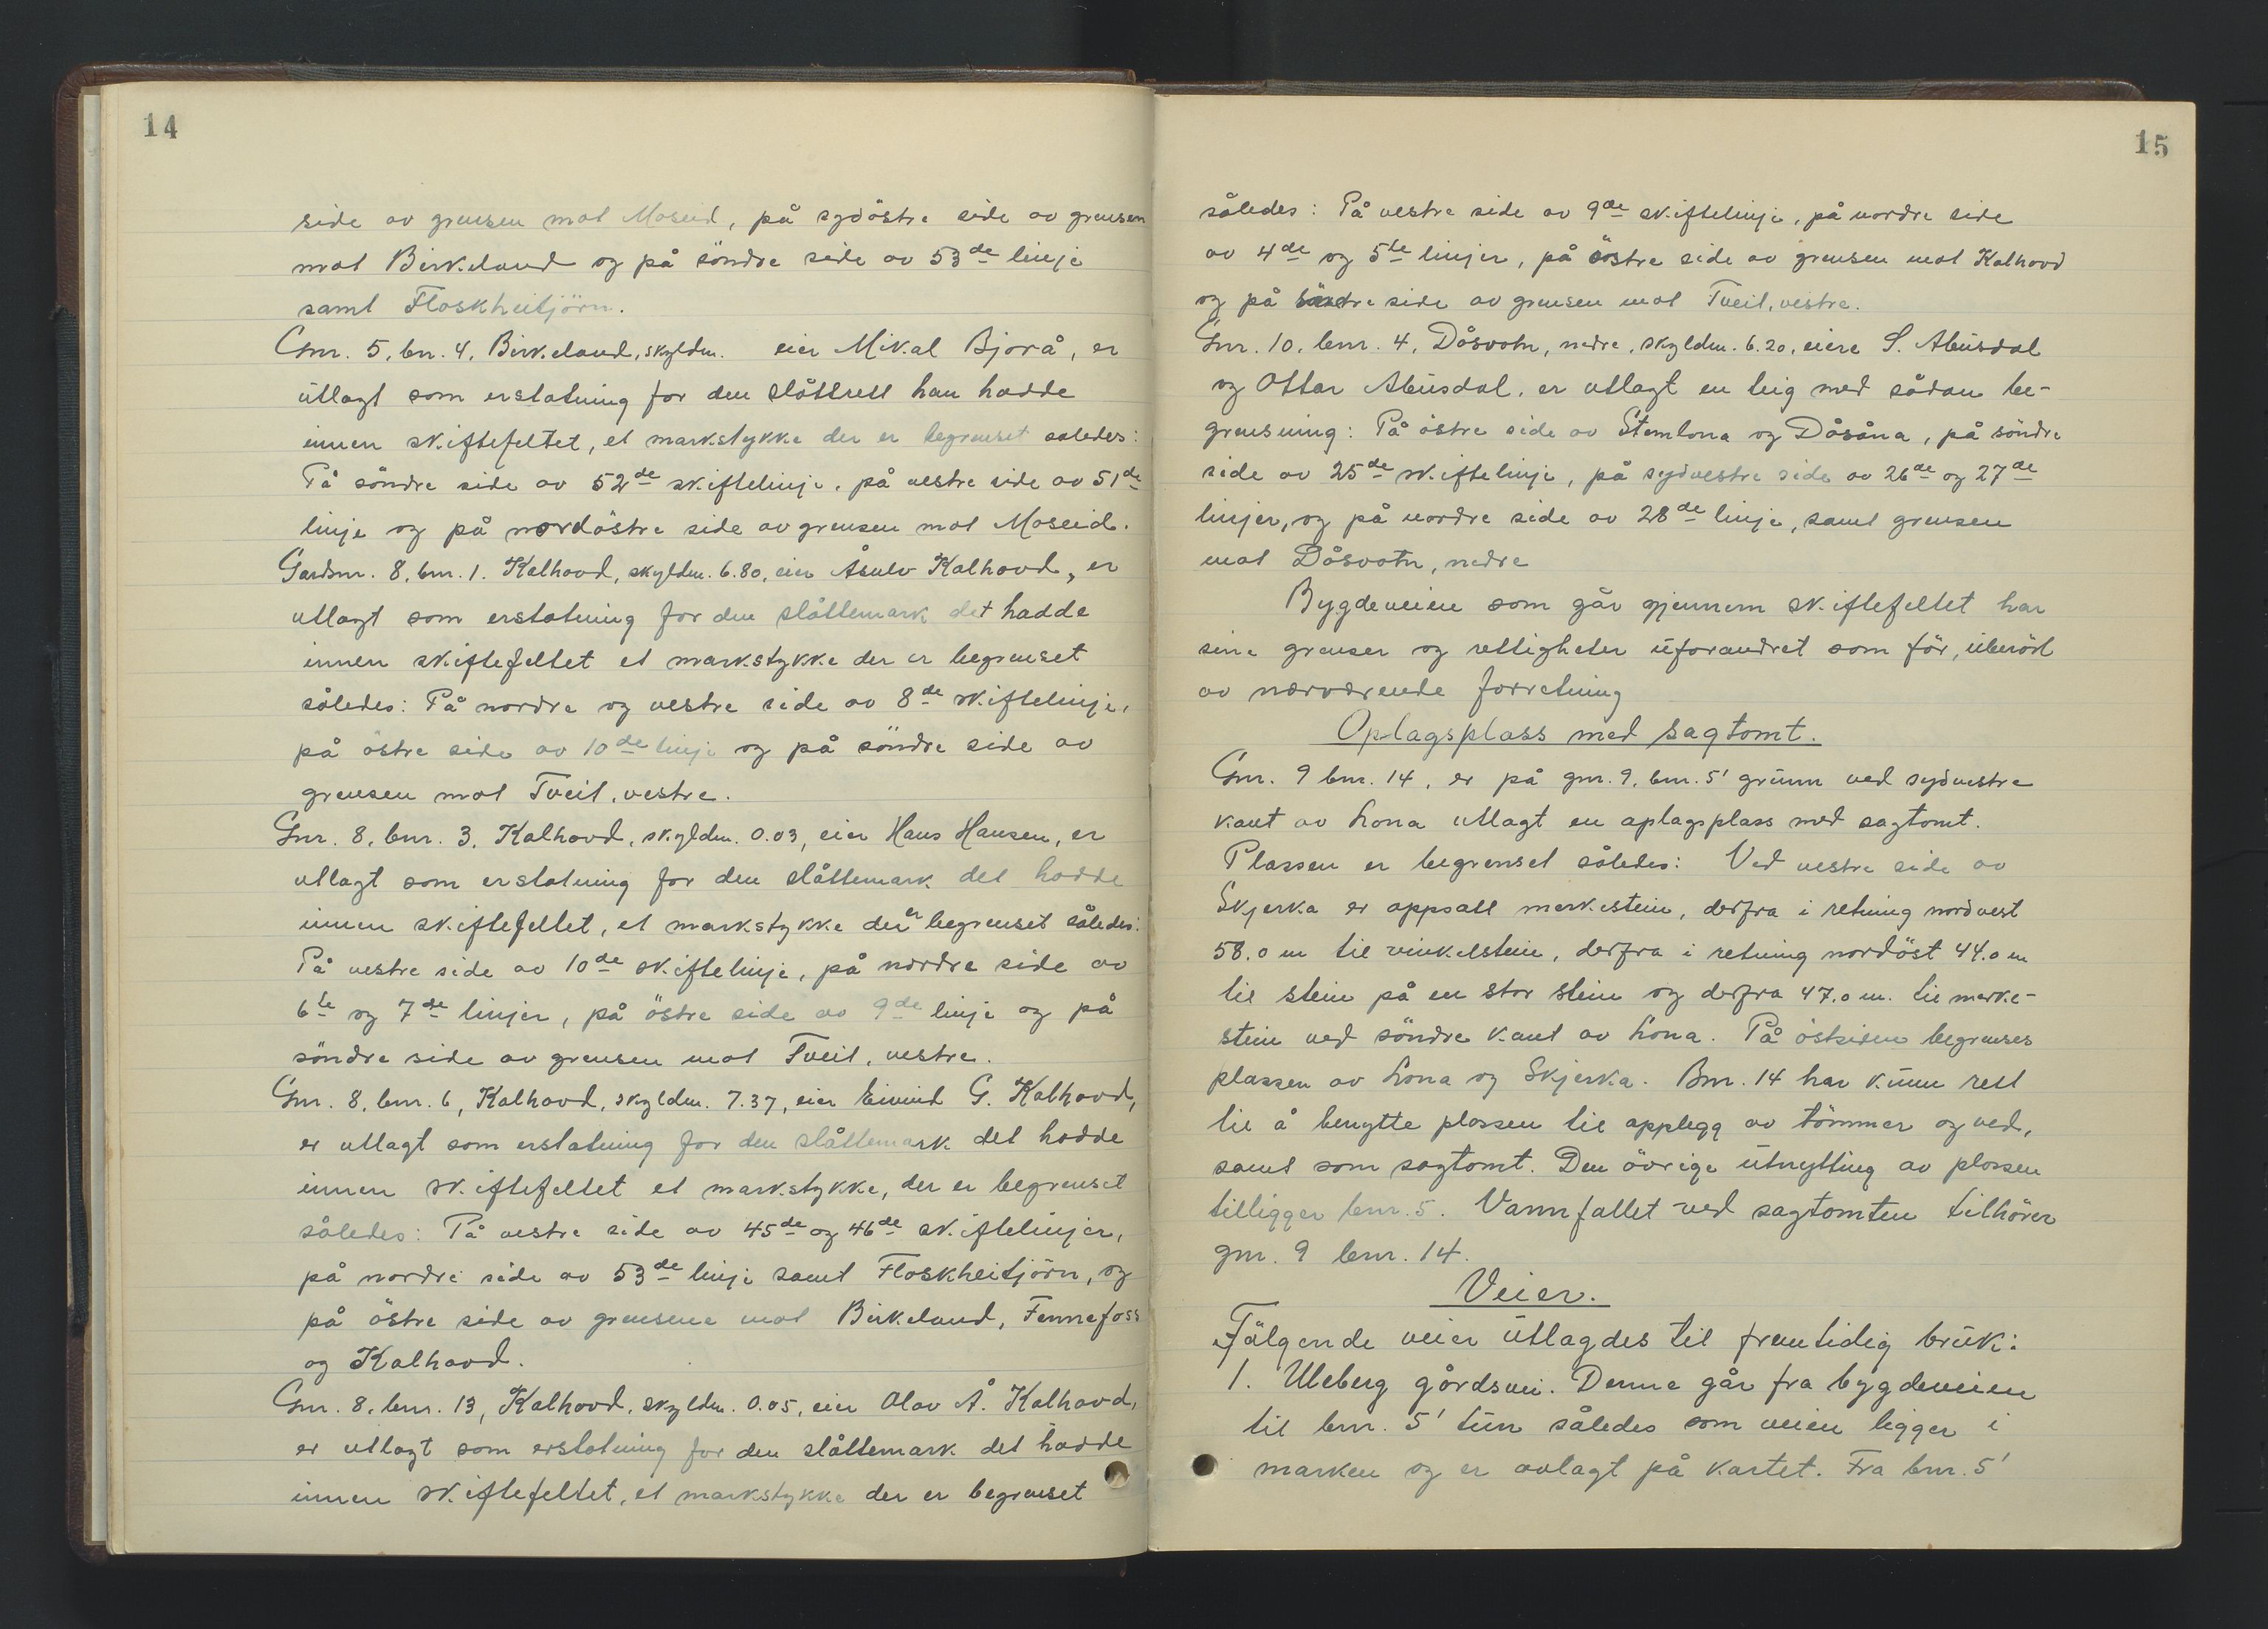 14
side av grensen mot Moseid, på sydöstre side av grensen
mot Birkeland og på söndre side av 53de linje
samt Floskheitjörn.
Gnr. 5, bnr. 4, Birkeland, skyldm. eier Mikal Bjorå, er
utlagt som erstatning for den slåttrett han hadde
innen skiftefeltet, et markstykke der er begrenset saledes:
På söndre side av 52de skiftelinje, på vestre side av 51de
linje og på nordöstre side av grensen mot Moseid.
Gardsnr. 8, bnr. 1. Kalhovd, skyldm. 6.80, eier Åsulv Kalhovd, er
utlagt som erstatning for den slåttemark det hadde
innen skiftefeltet et markstykke der er begrenset
således: På nordre og vestre side av 8de skiftelinje,
på östre side av 10de linje og på söndre side av
grensen mot Tveit, vestre.
Gnr. 8, bnr. 3, Kalhovd, skyldm. 0.03, eier Hans Hansen, er
utlagt som erstatning for den slåttemark det hadde
innen skiftefeltet, et markstykke der er begrenset således:
På vestre side av 10de skiftelinje, på nordre side av
6te og 7de linjer, på östre side av 9de linje og på
söndre side av grensen mot Tveit, vestre.
Gnr. 8, bnr. 6, Kalhovd, skyldm. 7.37, eier Eivind G. Kalhovd,
er utlagt som erstatning for den slåttemark det hadde
innen skiftefeltet et markstykke, der er begrenset
således: På vestre side av 45de og 46de skiftelinjer,
på nordre side av 53de linje samt Floskheitjörn, og
på östre side av grensene mot Birkeland, Fennefoss
og Kalhovd.
Gnr. 8, bnr. 13, Kalhovd, skyldm. 0.05, eier Olav Å. Kalhovd,
er utlagt som erstatning for den slåttemark det hadde
innen skiftefeltet, et markstykke der er begrenset
15
således: På vestre side av 9de skiftelinje, på nordre side
av 4de og 5te linjer, på östre side av grensen mot Kalhovd
og på söndre side av grensen mot Tveit, vestre.
Gnr. 10, bnr. 4, Dåsvatn, nedre, skyldm. 6.20, eiere S. Abusdal
og Ottar Abusdal, er utlagt en teig med sådan be-
grensning: På östre side av Stemlona og Dåsåna, på söndre
side av 25de skiftelinje, på sydvestre side av 26de og 27de
linjer, og på nordre side av 28de linje, samt grensen
mot Dåsvatn, nedre
Bygdeveien som går gjennem skiftefeltet har
sine grenser og rettigheter uforandret som för, uberört
av nærværende forretning
Oplagsplass med sagtomt.
Gnr. 9 bnr. 14, er på gnr. 9, bnr. 5' grunn ved sydvestre
kant av Lona utlagt en oplagsplass med sagtomt.
Plassen er begrenset således: Ved vestre side av
Skjerka er oppsatt merkestein, derfra i retning nordvest
58.0 m til vinkelstein, derfra i retning nordöst 44.0 m
til stein på en stor stein og derfra 47.0 m. til merke-
stein ved söndre kant av Lona. På östsiden begrenses
plassen av Lona og Skjerka. Bnr. 14 har kunn rett
til å benytte plassen til opplegg av tömmer og ved,
samt som sagtomt. Den övrige utnytting av plassen
tilligger bnr. 5. Vannfallet ved sagtomten tilhörer
gnr. 9 bnr. 14.
Veier.
Fölgende veier utlagdes til fremtidig bruk:
1. Uleberg gårdsvei. Denne går fra bygdeveien
til bnr. 5' tun således som veien ligger i
marken og er avlagt på kartet. Fra bnr. 5'